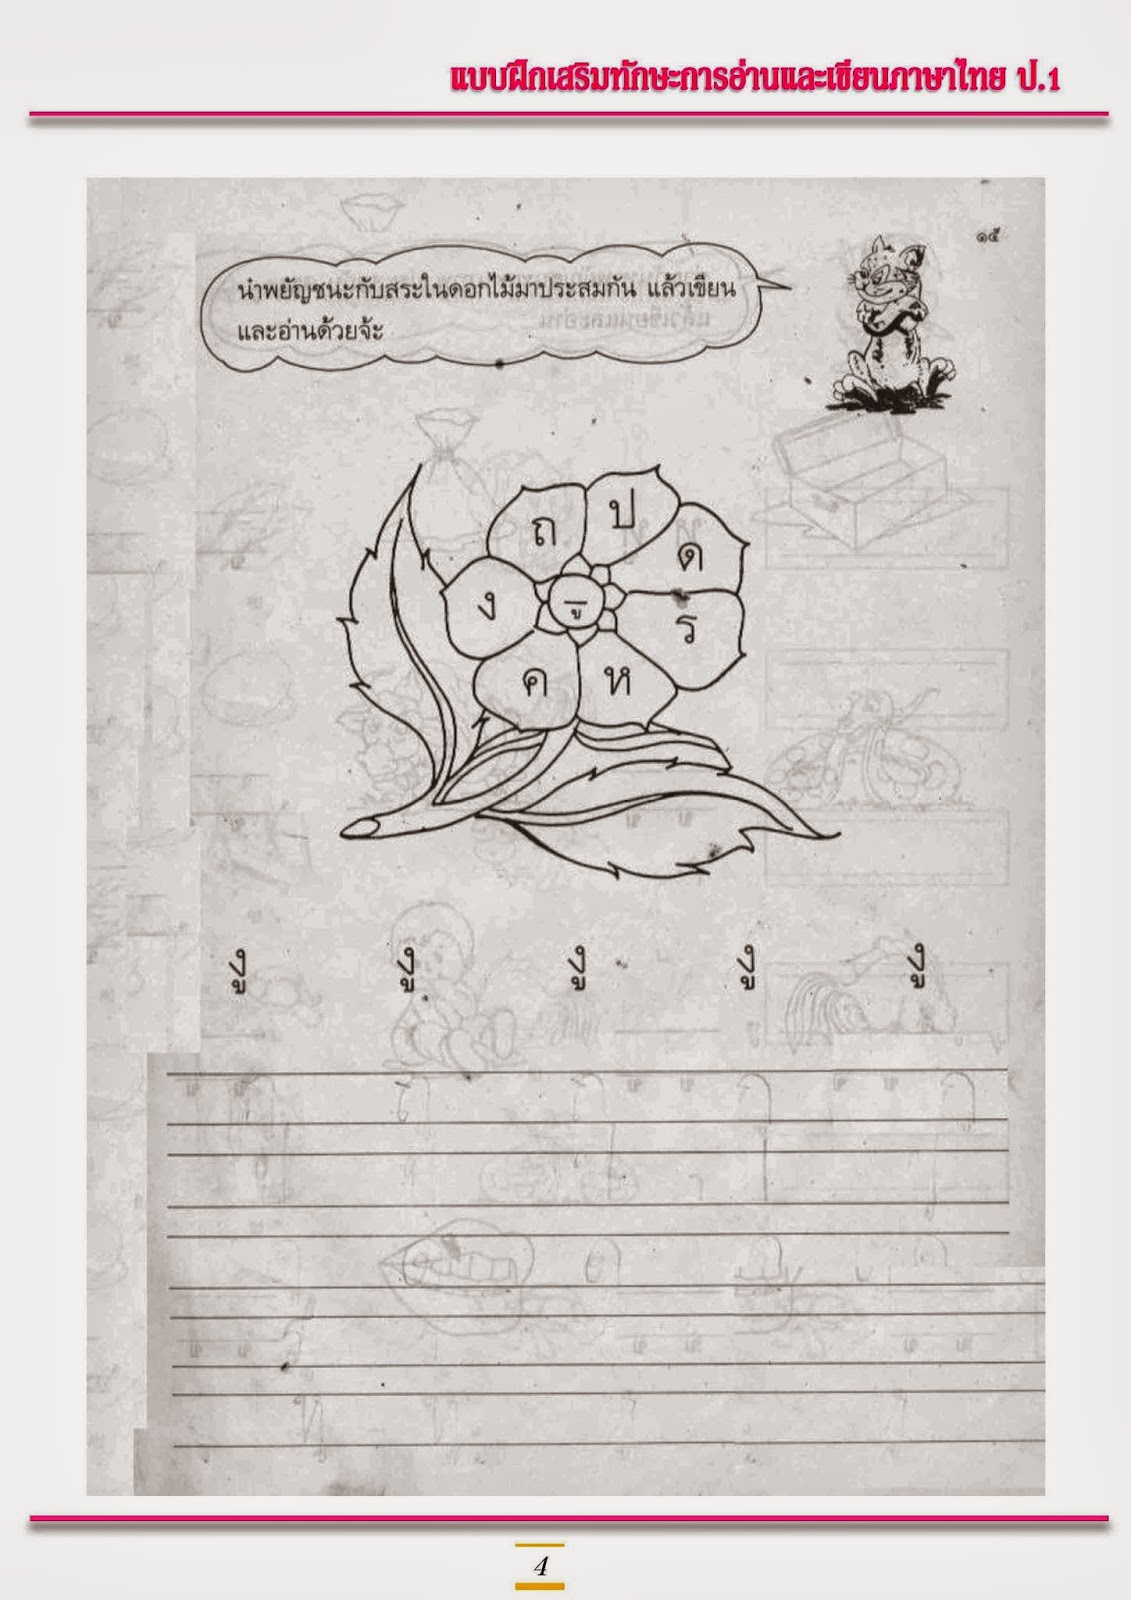 แบบฝึกเสริมทักษะการอ่านและเขียนภาษาไทย ป.1
๑๕
นำพยัญชนะกับสระในดอกไม้มาประสมกัน แล้วเขียน
และอ่านด้วยจ้ะ
ถ ป
ด
ง -ู ร
ค ห
งู งู งู งู งู
4